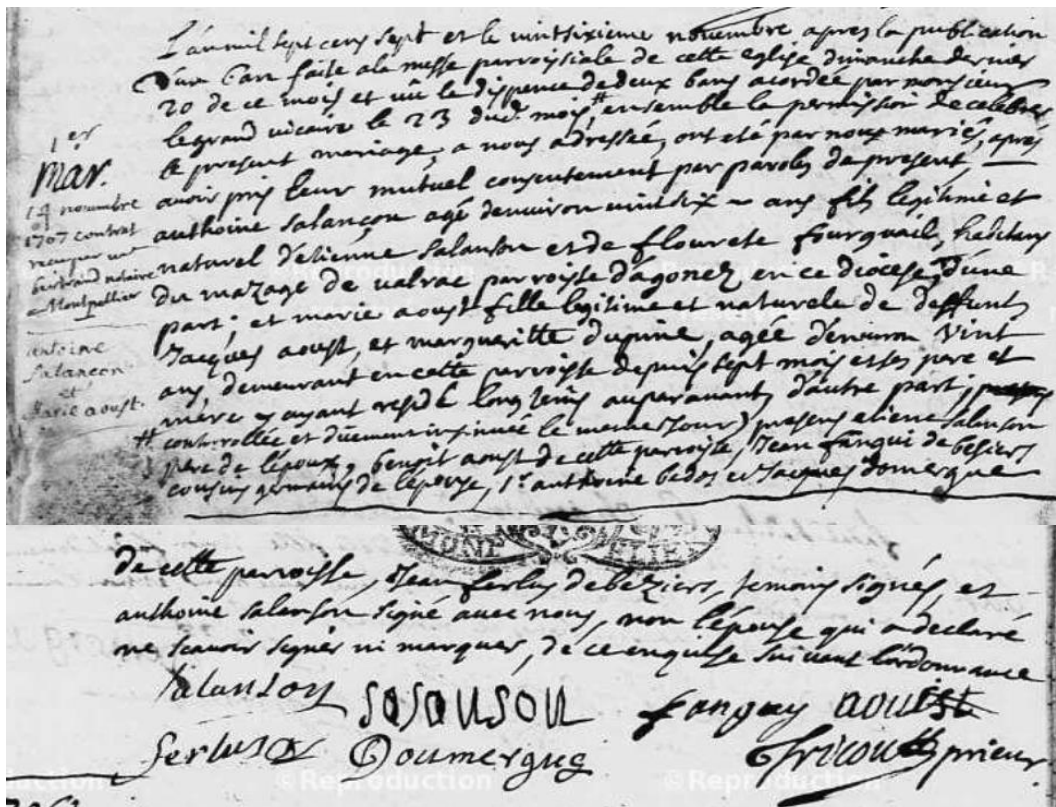 L'an mil sept cens sept et le vintsixieme novembre apres la publication
d'un ban faite a la messe parroissiale de cette eglise dimanche dernier
20 de ce mois et vû le dispence de deux bans acordée par monsieur
le grand vicaire le 23 dud. mois, # ensemble la permission de celebrer
le present mariage, a nous adressée, ont eté par nous mariés, apres
avoir pris leur mutuel consentement par paroles de present,
anthoine salançon agé d'environ vint six ans fils legitime et
naturel d'etienne salanson et de flourete fourquail, habitans
du mazage de valrac parroisse d'agonez en ce diocese, d'une
part; et marie aoust fille legitime et naturele de deffunts
Jacques aoust, et margueritte dupine, agée d'environ vint
ans, demeurant en cette parroisse depuis sept mois et ses pere et
mere y ayant residé longtems auparavant, d'autre part;
# controllée et düement insinuée le meme jour) presens etienne salanson
pere de l'époux, benoit aoust de cette parroisse, Jean fangui de besiers
cousins germains de l'epouse, Sr. anthoine bedos et Jacques domergue
1er
Mar.
14 novembre
1707 contrat
receu par me
bertrand notaire
Montpellier
Antoine
Salançon
et
Marie aoust.
de cette parroisse, Jean ferlus de beziers, temoins signés, et
anthoine salanson signé avec nous, non l'epouse qui a declaré
ne scavoir signer ni marquer, de ce enquise suivant l'ordonnance
salanson sosanson fanguy aoust
ferlus Doumergue Tricou prieur
© Reproduction